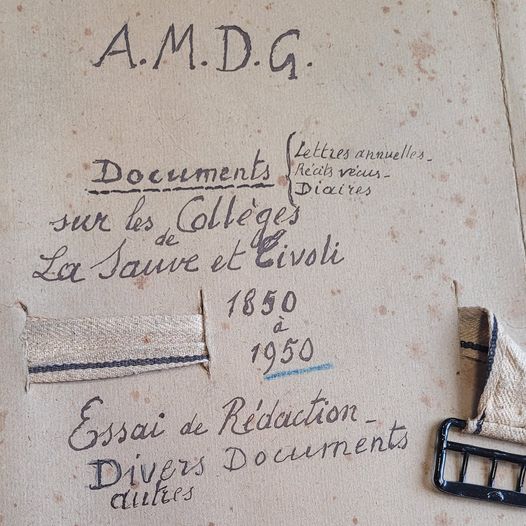 A.M.D.G.
Documents { Lettres annuelles_
Récits vécus_
Diaires
sur les Collèges
de
La Sauve et Tivoli
1850
à
1950
Essai de Rédaction_
Divers Documents
autres